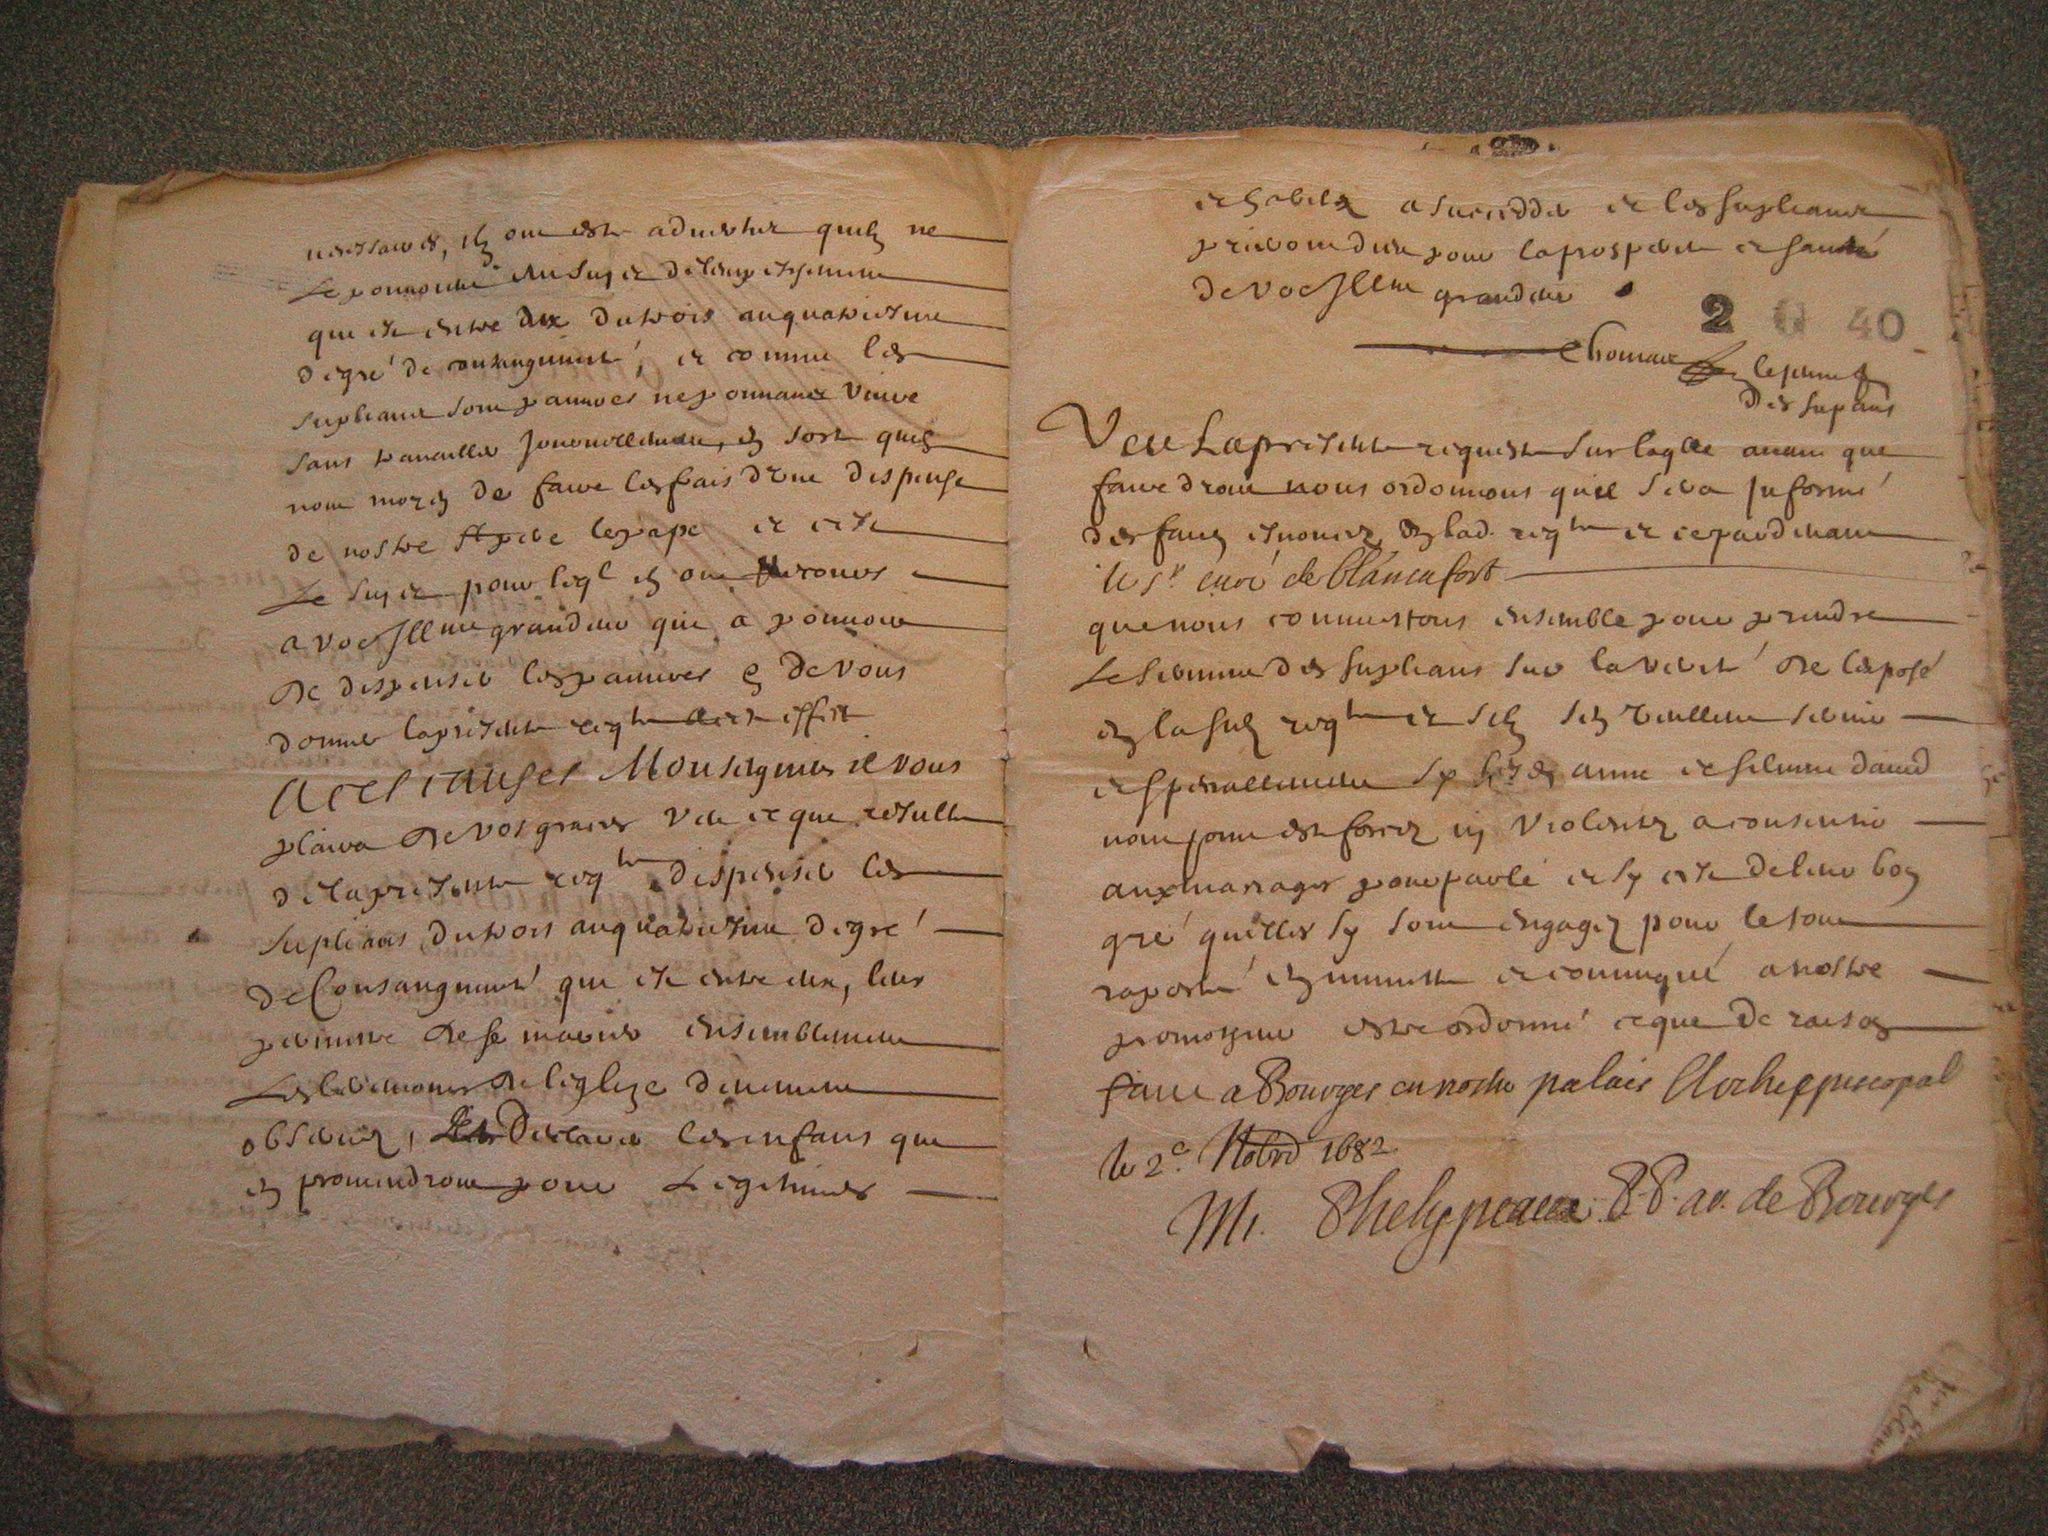 necessaires, ilz ont esté advertis quilz ne
le pouvoient au sujet de l'empeschement
que est entre eux du trois au quatriesme
degré de consanguinité, et comme les
supliants sont pauvres ne pouvants vivre
sans travailler journellement, en sorte quilz
nont moyen de faire les frais d'une dispense
de nostre St pere le pape et c'est
le sujet pour leql ilz ont recours
a vostre Illme grandeur qui a pouvoir
de dispenser les pauvres & de vous
donner la presente reqte a cest effect
A ces causes Monseigneur il vous
plaira de vos graces veu ce que resulte
de la presente reqte dispenser les
supliants du trois au quatriesme degré
de Consanguinité qui est entre eux, leur
permettre de se marier ensemblement
les ceremonies de leglize deuement
observez, Declarer les enfans que
en proviendront pour Legitimes
et habiles a succedder et les supliants
priront dieu pour la prosperité et santé
de vostre Illme grandeur
2 G 40
Thomas
des supants
Veu La presente requeste sur laqlle avant que
faire droit nous ordonnons quil sera Informé
des faits enoncez en lad. reqte et ce pardevant
le Sr. curé de blancafort
que nous commettons ensemble pour prendre
le serment des supliants sur la verité de l'exposé
en la sud reqte et silz
et specialement sy anne et silvine david
nont point esté forcez ny violentez a consentir
aux mariages pourparlé et sy c'est de leur bon
gré quelles sy sont engagez pour le tout
raporté en minutte et comuniqué a nostre
promoteur estre ordonné ce que de raison
faict a Bourges en nostre palais Archiepiscopal
le 2e. Nobre 1682
M. Phelypeaux P. P. ar. de Bourges